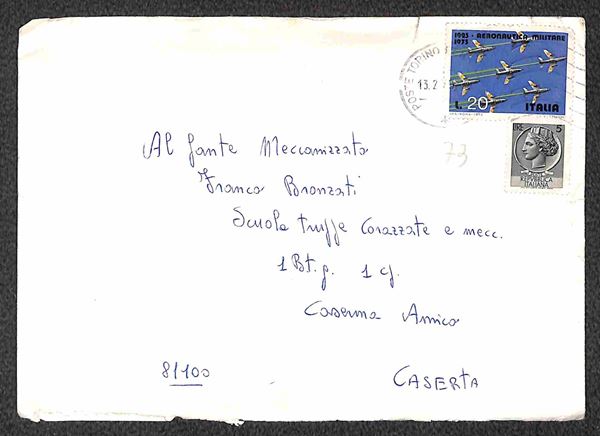 1923 - AERONAUTICA MILITARE
1973
POSTE TORINO
13.2
L. 20
ITALIA
5
REPUBBLICA
ITALIANA
73
Al fante Meccanizzato
Franco Bronzati
Scuola truppe Corazzate e mecc.
1 Bt.g. 1 cg.
Caserma Amico
81100
CASERTA